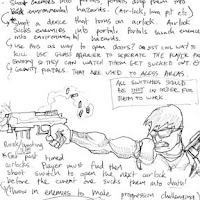 * Shoot enemies into portals. Portals drop them into
environmental hazards. (air-lock, lava pit etc
* Shoot a device that turns on airlock. Air lock
sucks enemies into portals. Portals launch enemies
into environmental hazards.
Use this as way to open doors? Most fun way to
kill. Use glass barrier to separate the player from
enemy so they can watch them get sucked out etc
Gravity portals. That are used to access areas
ALL SWITCHES SHOULD
BE SHOT IN ORDER FOR
THEM TO WORK
* Gun timed
airlocks. Player must find then
shoot switch to open the next airlock
before the current one sucks them into death!
(Throw in enemies to make progression challenging)